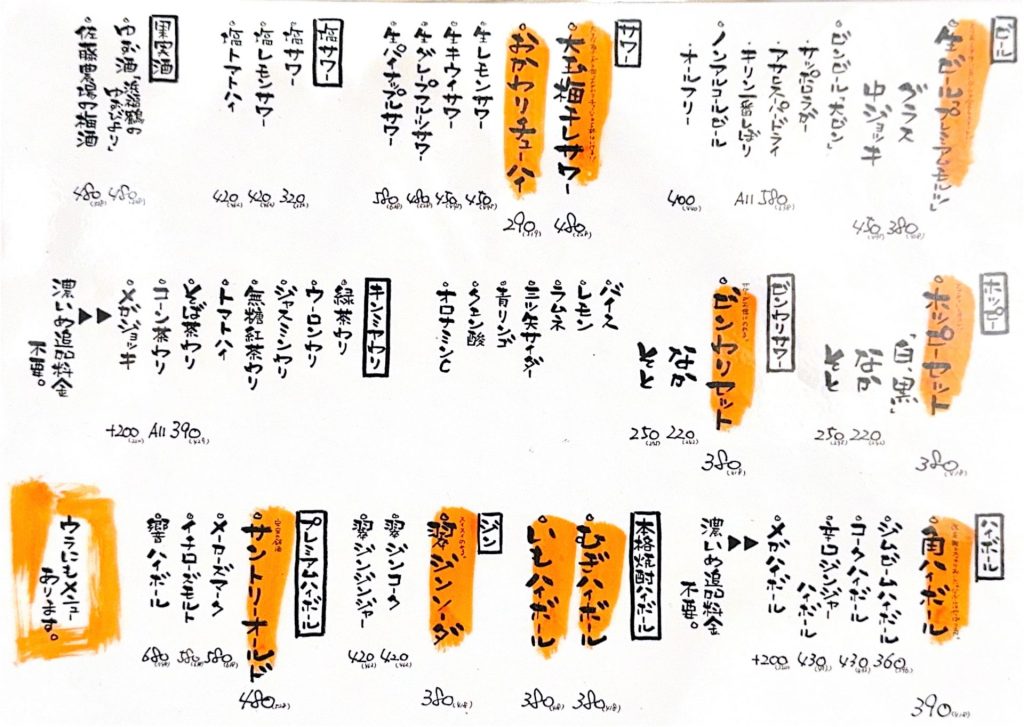 ビール
生ビール プレミアムモルツ
グラス 380(418)
中ジョッキ 450(495)
ビンビール「大ビン」
・サッポロラガー
・アサヒスーパードライ
・キリン一番しぼり
All 580(638)
・ノンアルコールビール
・オールフリー 400(440)
サワー
大生搾チレサワー 480(528)
おかわりのチューハイ 290(319)
生レモンサワー 450(495)
生キウイサワー 450(495)
生グレープフルーツサワー 480(528)
生パイナップルサワー 580(638)
塩サワー
塩サワー 320(352)
塩レモンサワー 420(462)
塩トマトハイ 420(462)
果実酒
ゆず酒 480(528)
佐藤農場の梅酒 480(528)
ホッピー
ホッピーセット 380(418)
「白・黒」
なか 220(242)
そと 250(275)
ビンワリサワー
ビンワリセット 380(418)
なか 220(242)
そと 250(275)
ジュース
レモン
ラムネ
三ツ矢サイダー
青リンゴ
クエン酸
オロナミンC
キンミヤワリ
緑茶ワリ
ウーロンワリ
ジャスミンワリ
無糖紅茶ワリ
トマトハイ
そば茶ワリ
コーン茶ワリ
All 390(429)
メガジョッキ +200(220)
濃いめ追加料金
不要。
ハイボール
角ハイボール 390(418)
ジムビームハイボール 360(396)
コークハイボール 430(473)
ジンジャー
ハイボール 430(473)
メガハイボール +200(220)
濃いめ追加料金
不要。
本格焼酎ハイボール
むぎハイボール 380(418)
いもハイボール 380(418)
ジン
翠ジンソーダ 380(418)
翠ジンコーク 420(462)
翠ジンジンジャー 420(462)
プレミアムハイボール
サントリーオールド 480(528)
メーカーズマーク 580(638)
響ハイボール 680(748)
ウラにもメニュー
あります。